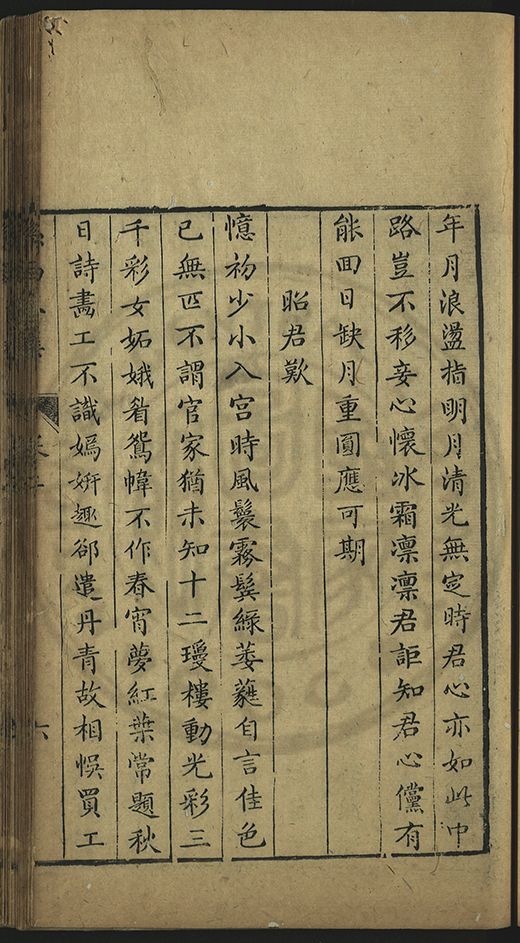 年月浪盪指明月清光無定時君心亦如此中
路豈不移妾心懷冰霜凛凛君詎知君心儻有
能回日缺月重圓應可期
昭君歎
憶初少小入宮時風鬟霧鬂綠萎蕤自言佳色
已無匹不謂官家猶未知十二璦樓動光彩三
千彩女妬娥眉鴛幃不作春宵夢紅葉常題秋
日詩畵工不識嫣妍趣郤遣丹青故相悞買工
六